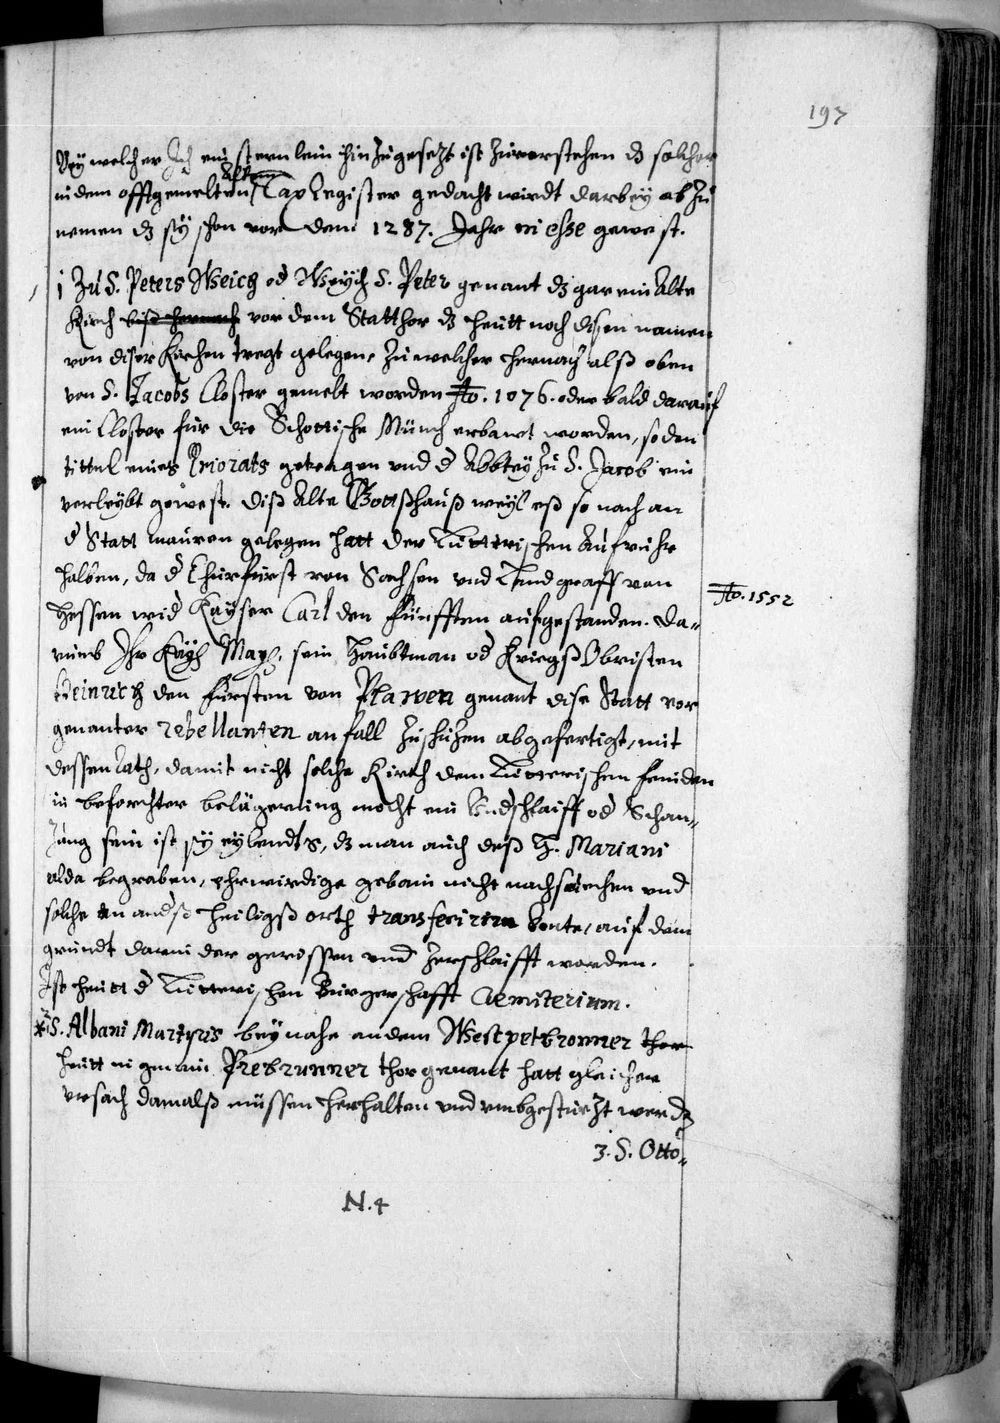 197
Bey welcher Ich ein sternlein hinzugesetzt ist zuuerstehen dz solcher
in dem offtgemelten Alten Tax Register gedacht wirdt darbey ab zu
nemen dz sy schon vor dem 1287. Jahr in esse gewest.
1 Zu S. Peters Weich od Weych S. Peter genant dz gar ein Alte
Kirch vor dem Statthor dz heutt noch disen namen
von diser Kirchen tregt gelegen, zu welcher hernach alß oben
von S. Jacobs Closter gemelt worden Ao. 1076. oder bald darauf
ein Closter für die Schottische Münch erbawt worden, so den
tittul eines Priorats getragen vnd d Abbtey zu S. Jacob ein
verleybt gewest. Diß Alte Gottßhauß weyl eß so nach an
d Statt mauren gelegen hatt der Lutterischen Aufruhr
halben, da d Churfürst von Sachsen vnd Landgraff von
Hessen wid Kayser Carl den Fünfften aufgestanden. Da-
Ao. 1552
rumb Ihr Kay: May: sein Haubtman od Kriegß Obristen
Heinrich den Fürsten von Plawen genant dise Statt vor
genanter rebellanten anfall zuschuzen abgefertigt, mit
dessen Rath, damit nicht solche Kirch dem Lutterischen feinden
in beforchter belägerung mocht ein Vndschlaiff od Schan-
zung sein ist sy eylendts, dz man auch deß H. Mariani
alda begraben, ehrwirdige gebain nicht nachsuechen vnd
solche an andß heiligß orth transferirn konte, auf dem
grundt darnider gerissen vnd zerschlaifft worden.
Ist heutt d Lutterischen Burgerschafft Caemiterium.
* 2 S. Albani Martyris bey nahe an dem Westpetbronner thor
heutt in gemain Prebrunner thor genant hatt gleicher
vrsach damalß müssen herhalten vnd vmbgestürzt werdz
3. S. Otto-
N. 4